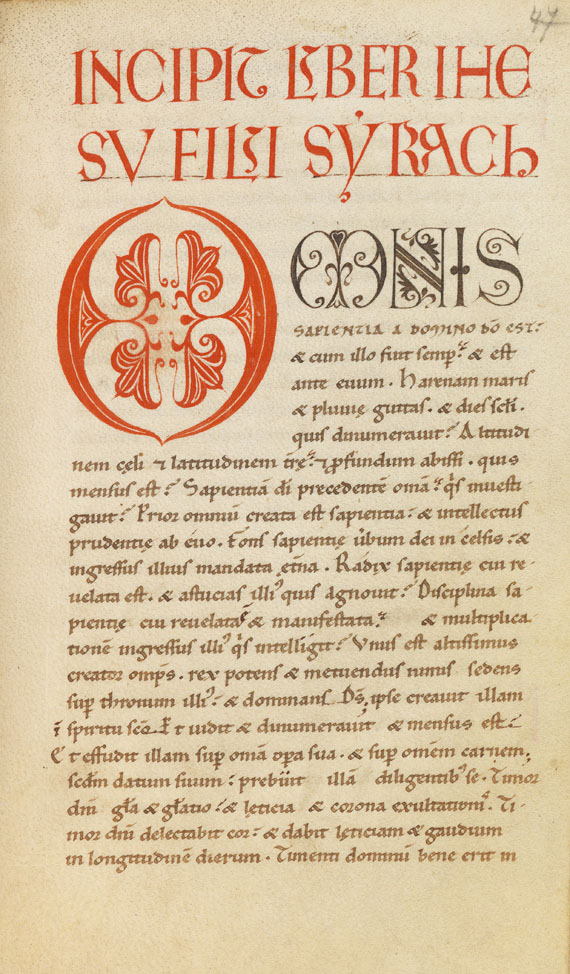 47
INCIPIT LIBER IHE
SV FILII SYRACh
OMNIS
SAPIENTIA A DOMINO DÕ EST:
& cum illo fuit semp̃. & est
ante euum. Harenam maris
& pluuię guttas. & dies scłi.
quis dinumerauit? Altitudi
nem cęli & latitudinem tr̃ę. & ꝓfundum abissi. quis
mensus est? Sapientiã dĩ precedentẽ omã. qͥs inuesti-
gauit? Prior omniũ creata est sapientia. & intellectus
prudentię ab ęuo. Fons sapientię ũbum dei in celsis. &
ingressus illius mandata ęt̃na. Radix sapientię cui re-
uelata est. & astucias illiꝰ quis agnouit? Disciplina sa-
pientię cui reuelata & manifestata? & multiplica
tionẽ ingressus illiꝰ qͥs intelligit? Vnus est altissimus
creator omp̃s. rex potens & metuendus nimis sedens
sup̃ thronum illiꝰ. & dominans Dš. ipse creauit illam
ĩ spiritu scõ. Et uidit & dinumerauit & mensus est.
Et effudit illam sup̃ omã oꝑa sua. & sup̃ omẽm carnem;
scdm̃ datum suum. prebuit illã diligentibꝰ se. Timor
dnĩ gła & głatio. & lęticia & corona exultationiꝰ. Ti-
mor dnĩ delectabit cor. & dabit lęticiam & gaudium
in longitudinẽ dierum. Timenti dominũ bene erit in